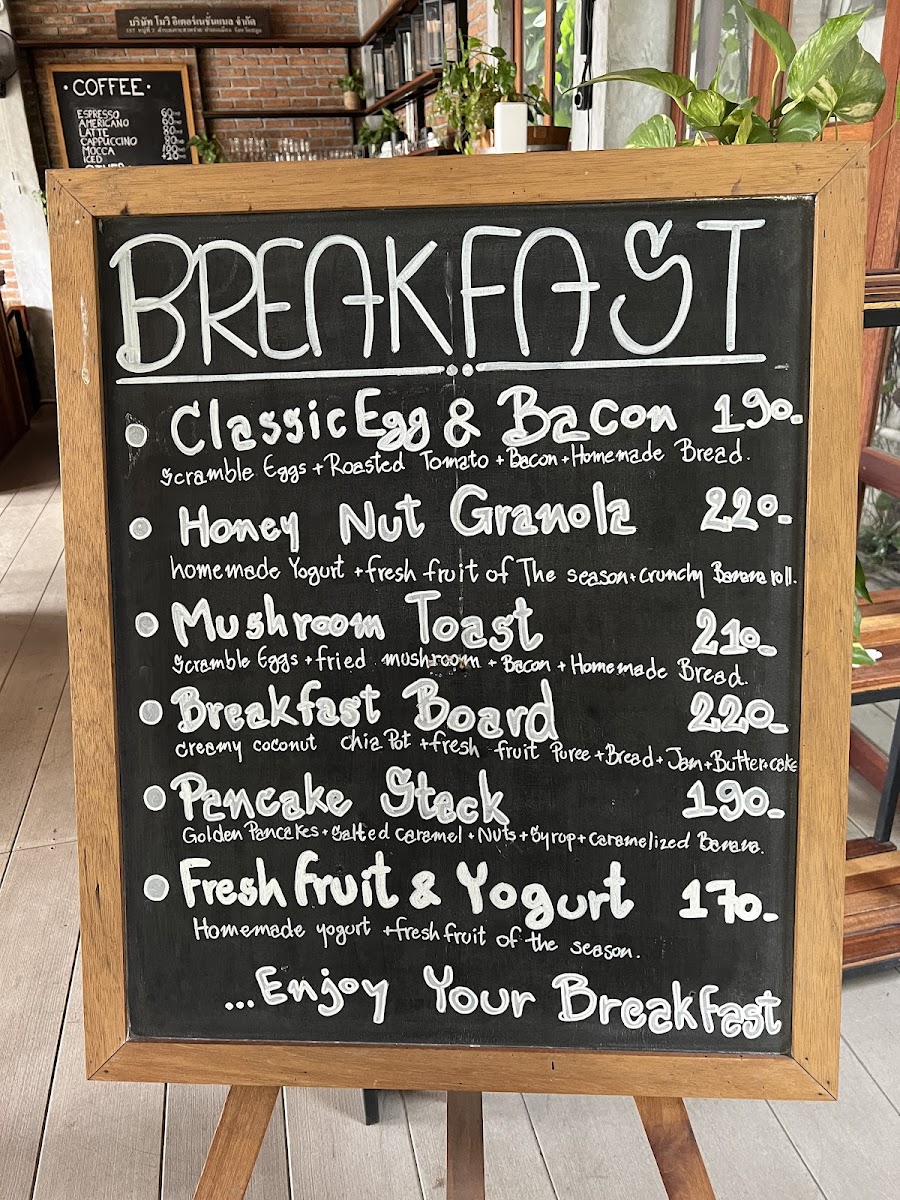 บริษัท โมวี อินเตอร์เนชั่นแนล จำกัด
COFFEE
ESPRESSO 60
AMERICANO 60
LATTE 80
CAPPUCCINO 80
MOCCA
ICED +20
BREAKFAST
Classic Egg & Bacon 190.-
Scramble Eggs + Roasted Tomato + Bacon + Homemade Bread.
Honey Nut Granola 220.-
homemade Yogurt + fresh fruit of The season + crunchy Banana roll.
Mushroom Toast 210.-
Scramble Eggs + fried mushroom + Bacon + Homemade Bread.
Breakfast Board 220.-
creamy coconut chia Pot + fresh fruit Puree + Bread + Jam + Butter + cake
Pancake Stack 190.-
Golden Pancakes + Salted caramel + Nuts + Syrop + caramelized Banana.
Fresh Fruit & Yogurt 170.-
Homemade yogurt + fresh fruit of the season.
...Enjoy Your Breakfast